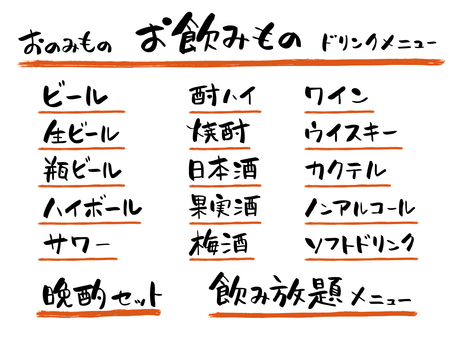 おのみもの お飲みもの ドリンクメニュー
ビール 酎ハイ ワイン
生ビール 焼酎 ウイスキー
瓶ビール 日本酒 カクテル
ハイボール 果実酒 ノンアルコール
サワー 梅酒 ソフトドリンク
晩酌セット 飲み放題メニュー